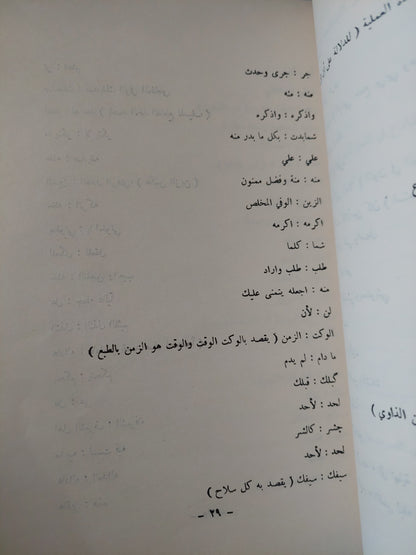 جر : جرى وحدث
منه : مثه
واذكره : واذكره
شمابدت : بكل ما بدر منه
علي : علي
منه : منة وفضل ممنون
الزين : الوفي المخلص
اكرمه : اكرمه
شما : كلما
طلب : طلب واراد
منه : اجعله يتمنى عليك
لن : لأن
الوكت : الزمن ( يقصد بالوكت الوقت والوقت هو الزمن بالطبع )
ما دام : لم يدم
گبلك : قبلك
لحد : لأحد
چشر : كالشر
لحد : لأحد
سيفك : سيفك ( يقصد به كل سلاح )
- ٢٩ -
ده العملية (
ن الذاوي )